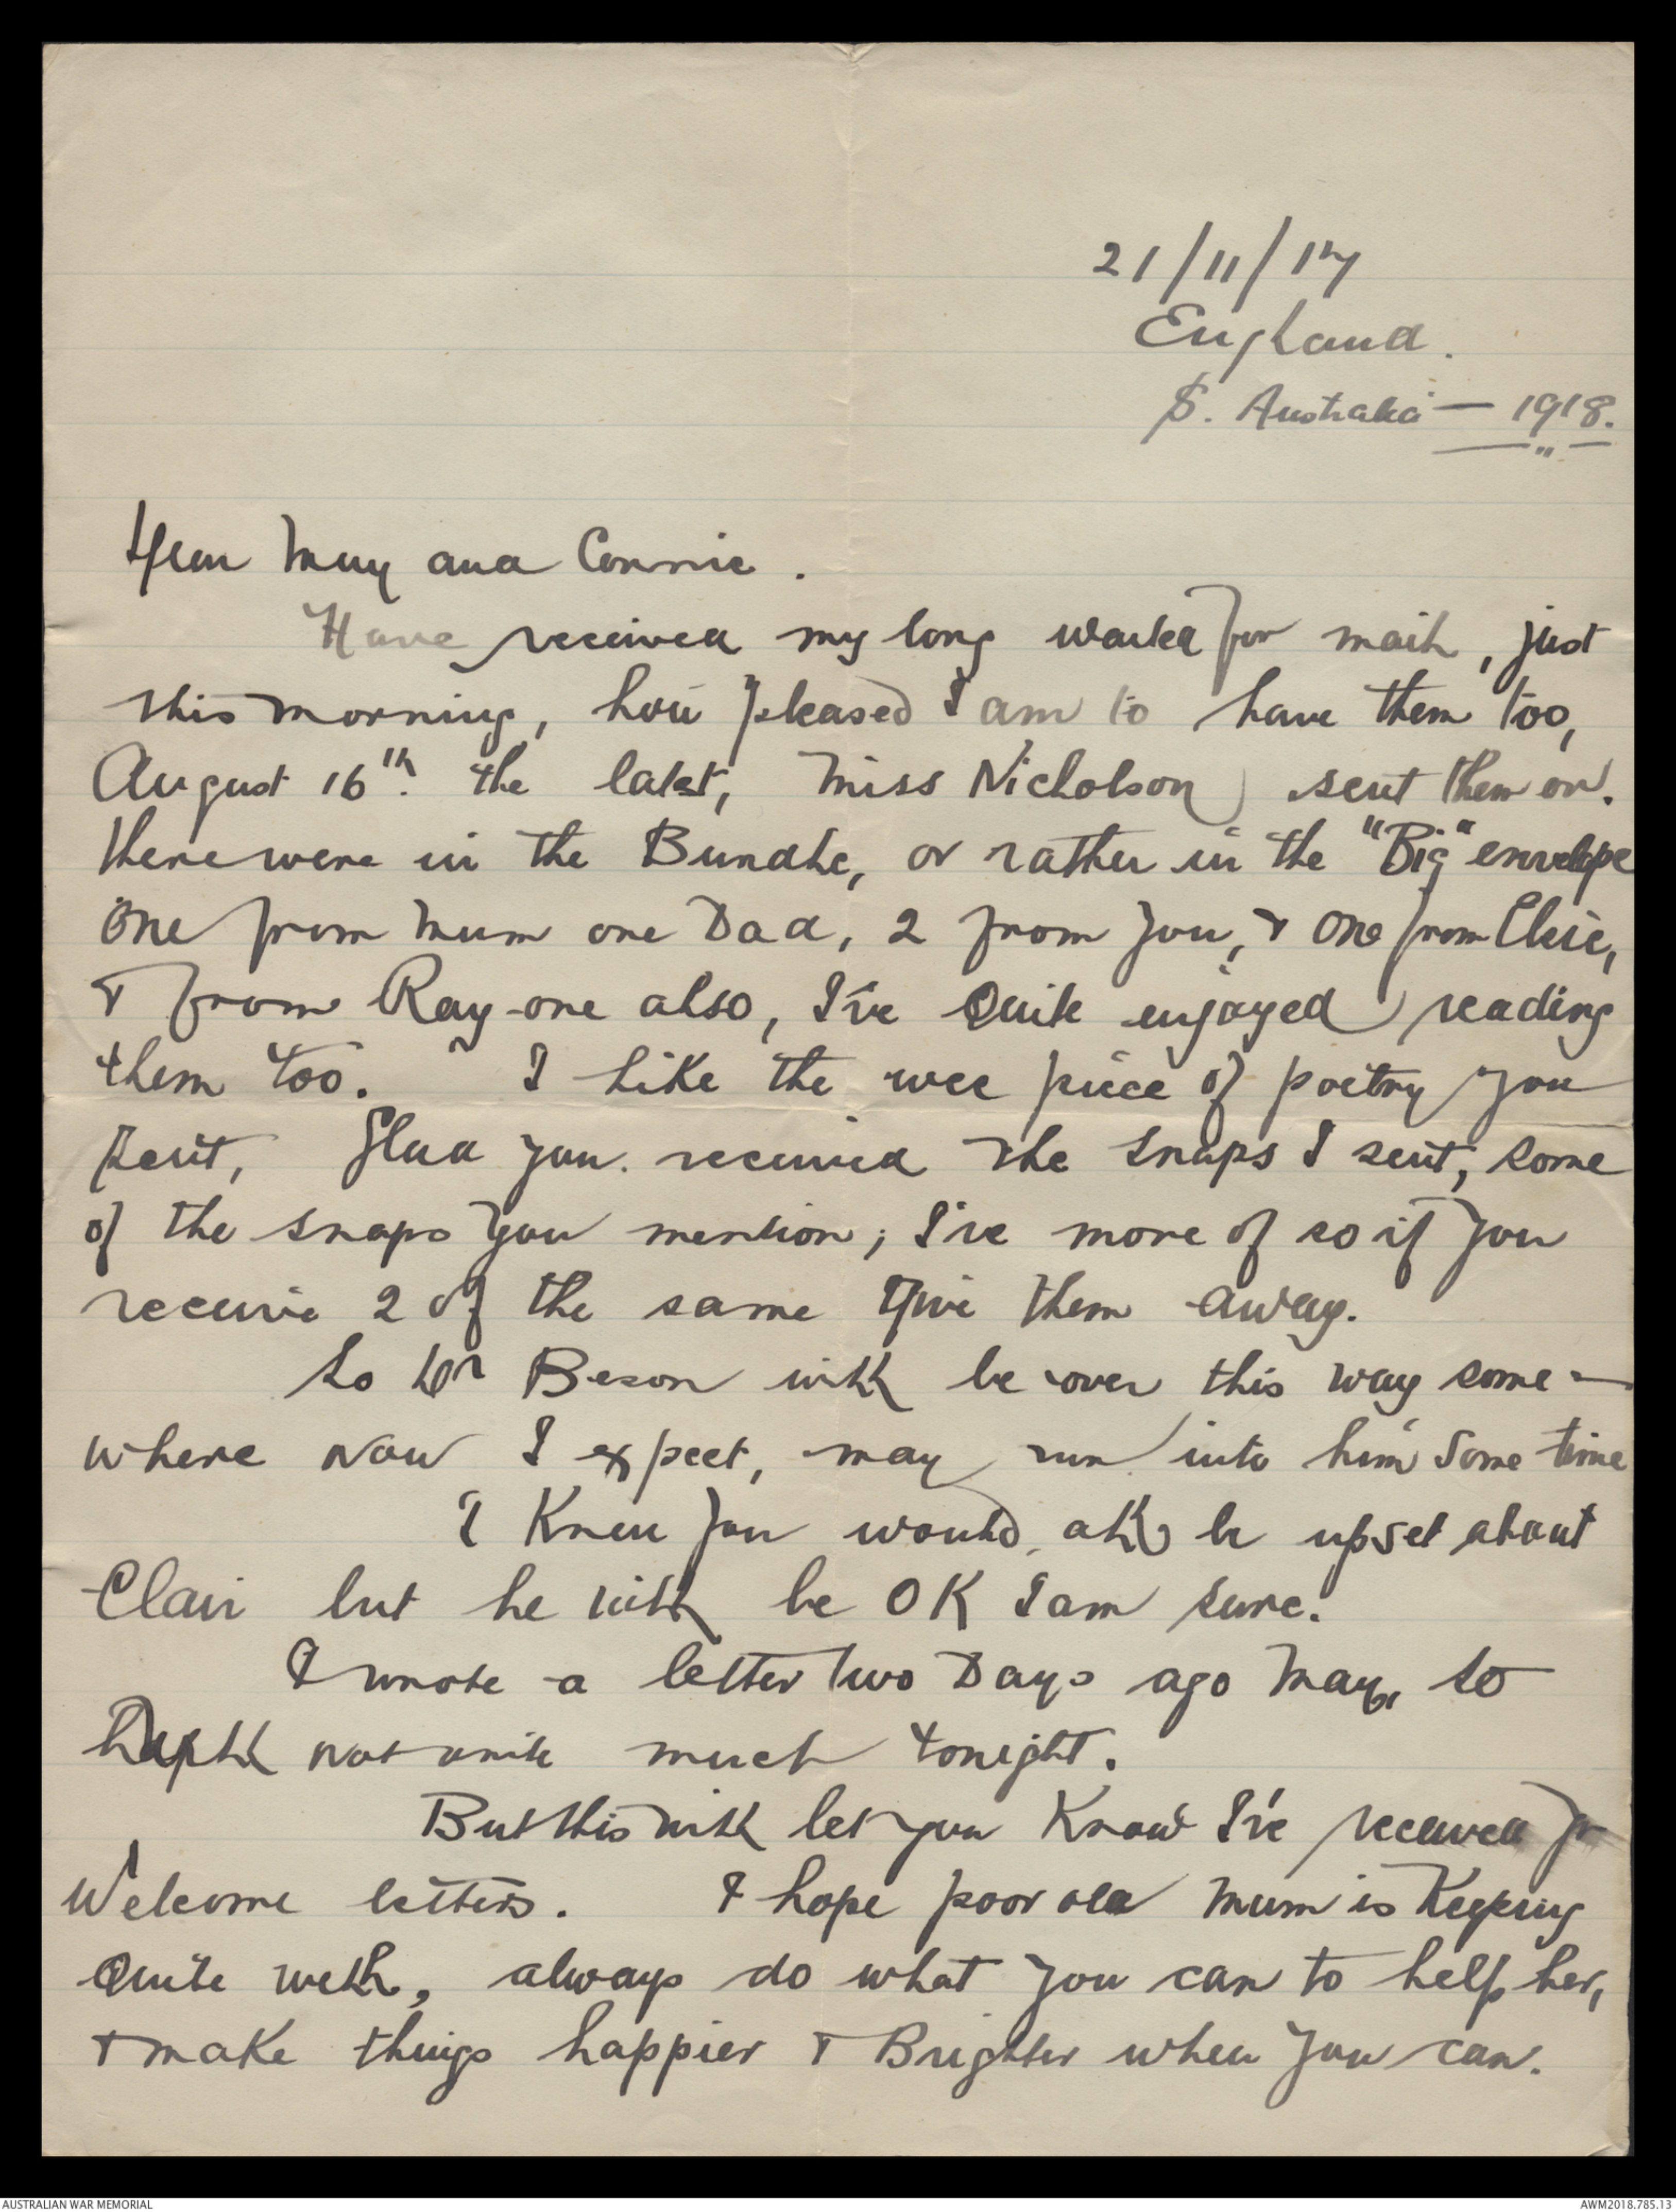 21/11/17
England.
S. Australia — 1918.
Dear May and Connie.
Have received my long waited for mail, just
this morning, how pleased I am to have them too,
August 16th. the latest, Miss Nicholson sent them on.
there were in the Bundle, or rather in the "Big" envelope
one from Mum one Dad, 2 from you, & one from Elsie,
& from Ray one also, I've Quite enjoyed reading
them too. I like the wee piece of poetry you
sent, Glad you received the snaps I sent, some
of the snaps you mention; I've more of so if you
receive 2 of the same Give them away.
So Beson will be over this way some-
where now I expect, may run into him some time
I Knew you would all be upset about
Clair but he will be OK I am sure.
I wrote a letter two Days ago May, so
shall not write much tonight.
But this will let you Know I've received yr
Welcome letters. I hope poor old Mum is Keeping
Quite well, always do what you can to help her,
& make things happier & Brighter when you can.
AUSTRALIAN WAR MEMORIAL
AWM2018.785.13